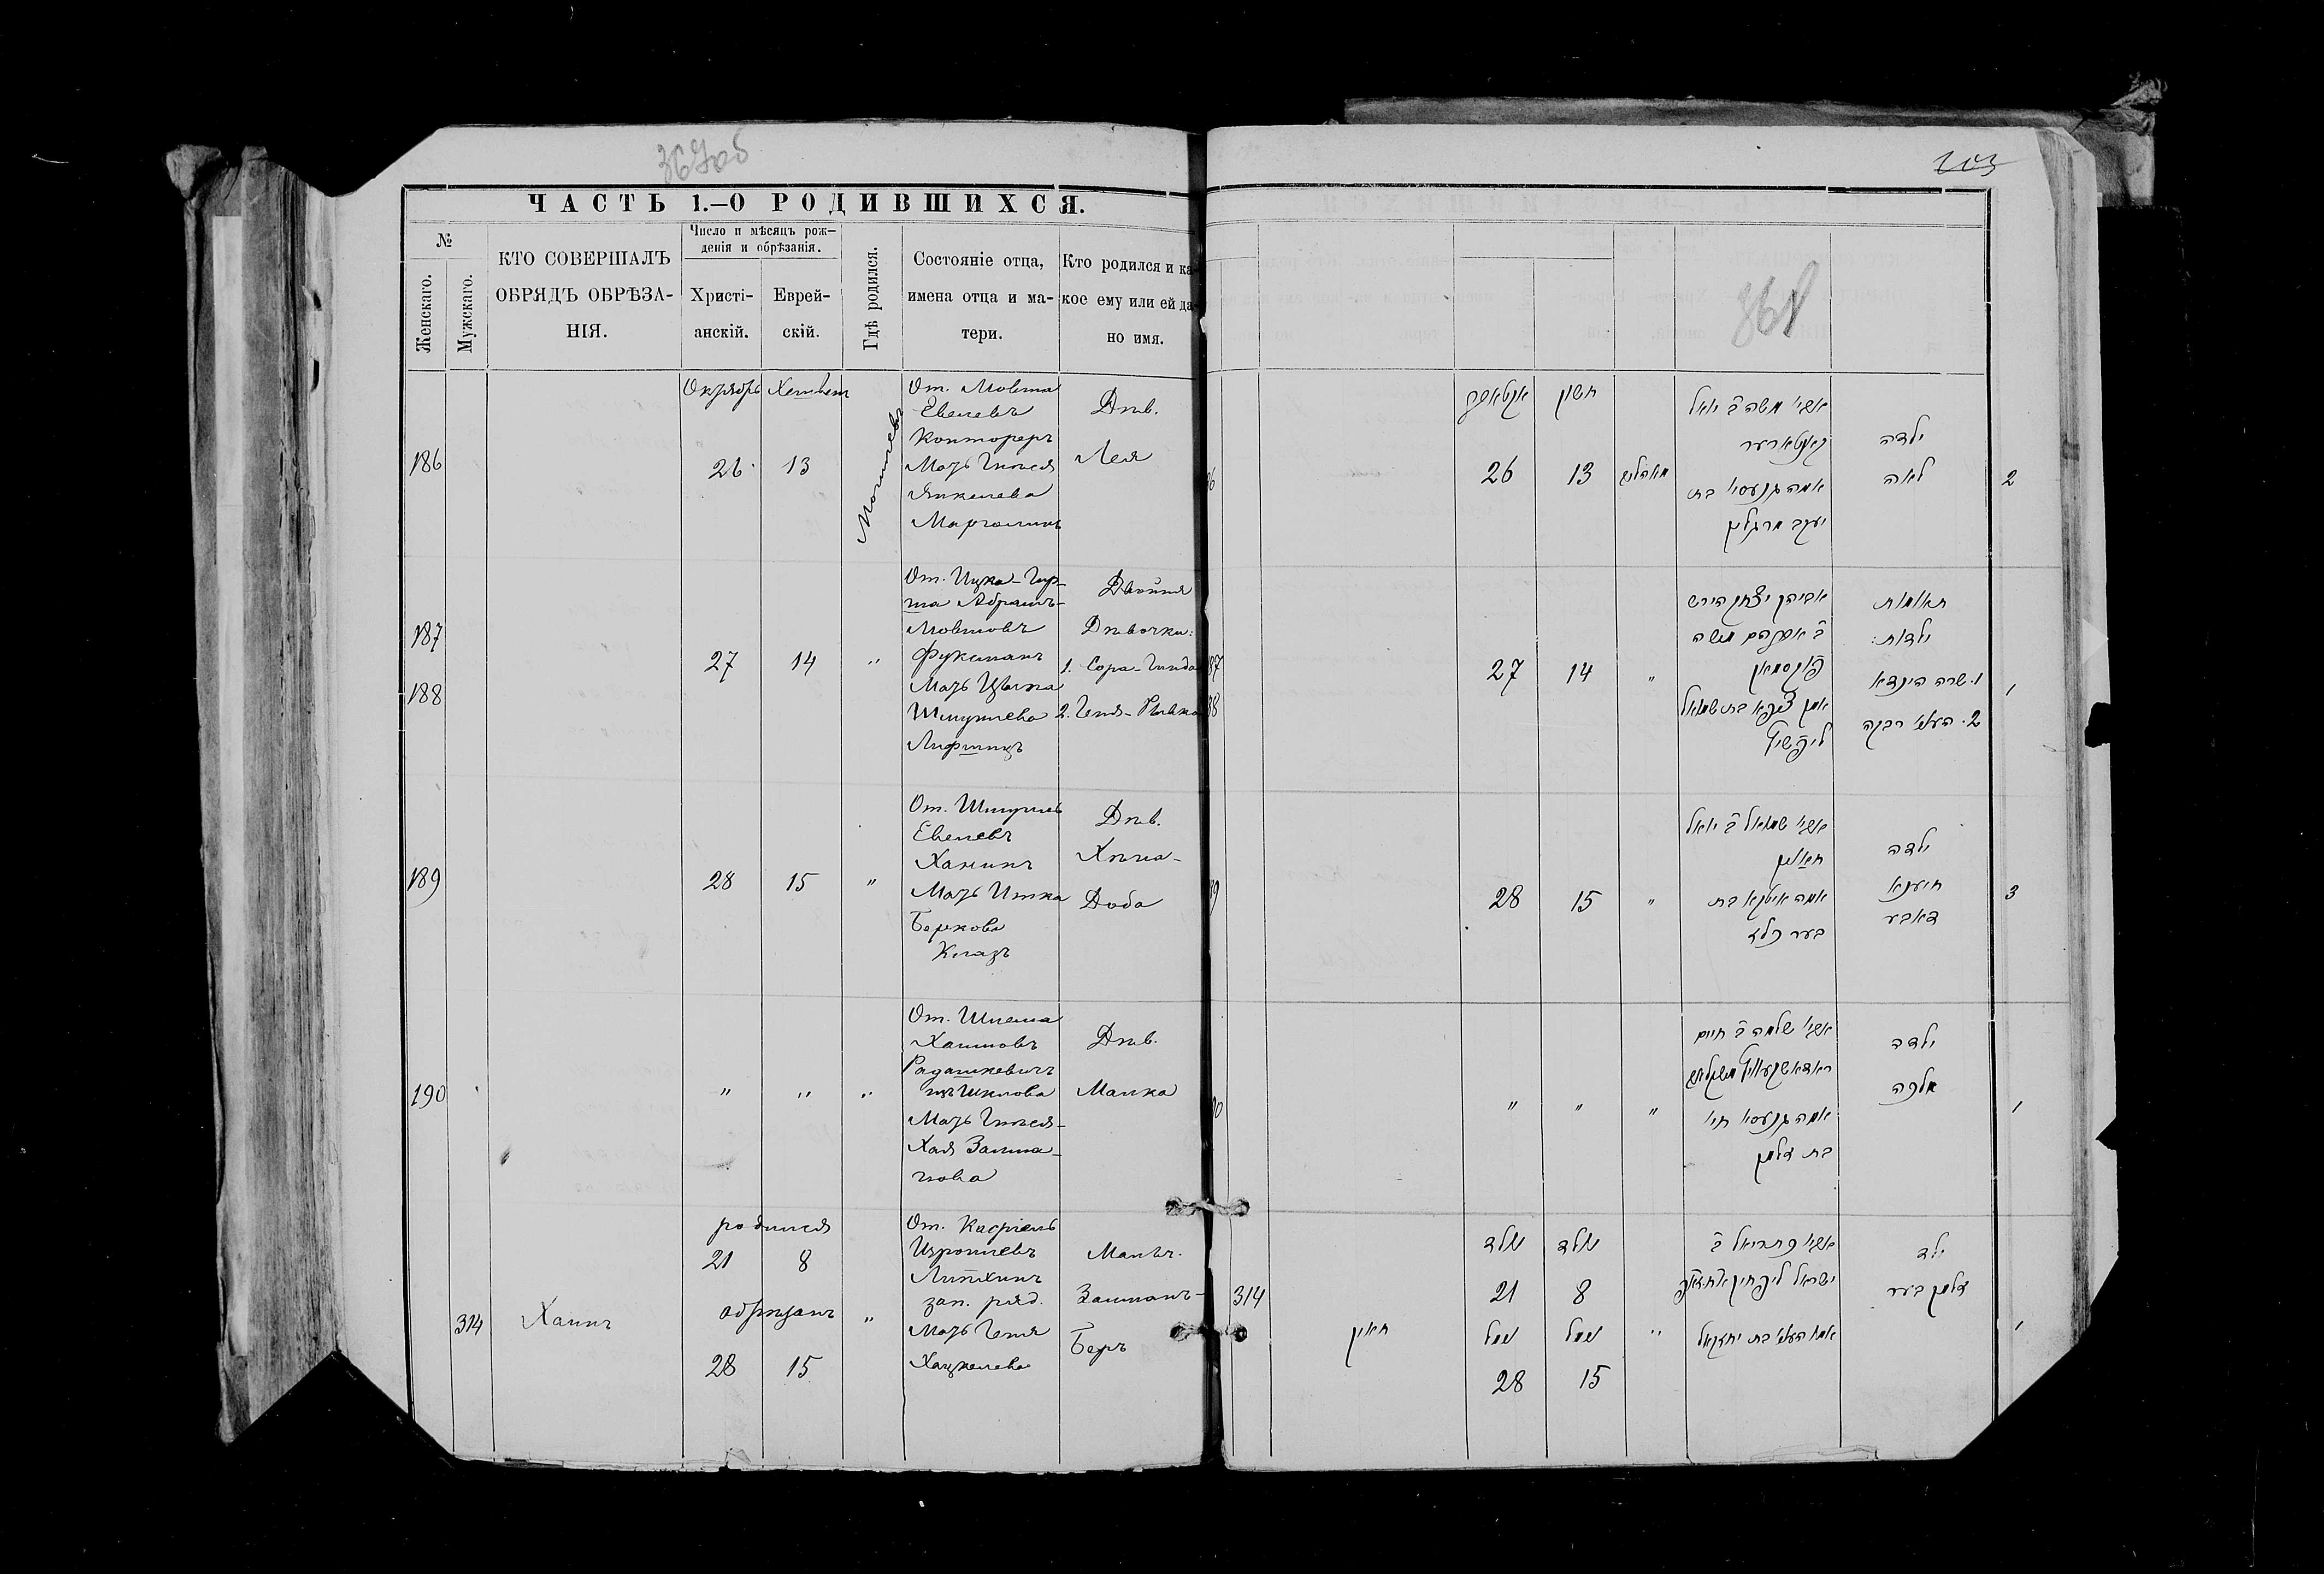 367об
ЧАСТЬ 1.–О РОДИВШИХСЯ.
№
Женскаго.
Мужскаго.
КТО СОВЕРШАЛЪ
ОБРЯДЪ ОБРѢЗА-
НІЯ.
Число и мѣсяцъ рож-
денія и обрѣзанія.
Христі-
анскій.
Еврей-
скій.
Гдѣ родился.
Состояніе отца,
имена отца и ма-
тери.
Кто родился и ка-
кое ему или ей да-
но имя.
186
Октябрь Хешвенъ
26 13
Могилевъ
От. Мовша
Евелевъ
Контореръ
Мать Гнеся
Янкелева
Марголинъ
Дѣв.
Лея
187
188
27 14 "
От. Ицка-Гир-
ша Абрамъ-
Мовшовъ
Фуксманъ
Мать Цывка
Шмуилева
Лифшицъ
Двойня
Дѣвочки:
1. Сора-Гинда
2. Геня-Ривка
189
28 15 "
От. Шмуилъ
Евелевъ
Ханинъ
Мать Итка
Беркова
Клазъ
Дѣв.
Хѣна-
Доба
190
" " "
От. Шлема
Хаимовъ
Радашкевичъ
изъ Шклова
Мать Гнеся-
Хая Залма-
нова
Дѣв.
Малка
314
Хаинъ
родился
21 8
обрѣзанъ "
28 15
От. Касріель
Изроилевъ
Липкинъ
зап. ряд.
Мать Геня
Хацкелева
Мальч.
Залманъ-
Беръ
203
368
אקטאבער חשון
26 13 מאהליב
אביו משה ב יואל
קאנטארער
אמה גנעסיא בת
יעקב מרגלין
ילדה
לאה
2
87
88
27 14 "
אביהן יצחק הירש
ב אברהם משה
פוקסמאן
אמן צביקא בת שמואל
ליפשיץ
תאומות
ילדות:
1. שרה הינדא
2. העניא רבקה
1
28 15 "
אביו שמואל ב יואל
חאנין
אמה איטקא בת
בער קלאז
ילדה
חיענא
דאבע
3
" " "
אביו שלמה ב חיים
אמה גנעסיא חיי
בת זלמן
ילדה
מלכה
1
314
חאין
נולד נולד
21 8
נימול נימול "
28 15
אביו כתריאל ב
אמו העניא בת יחזקאל
ילד
זלמן בער
1